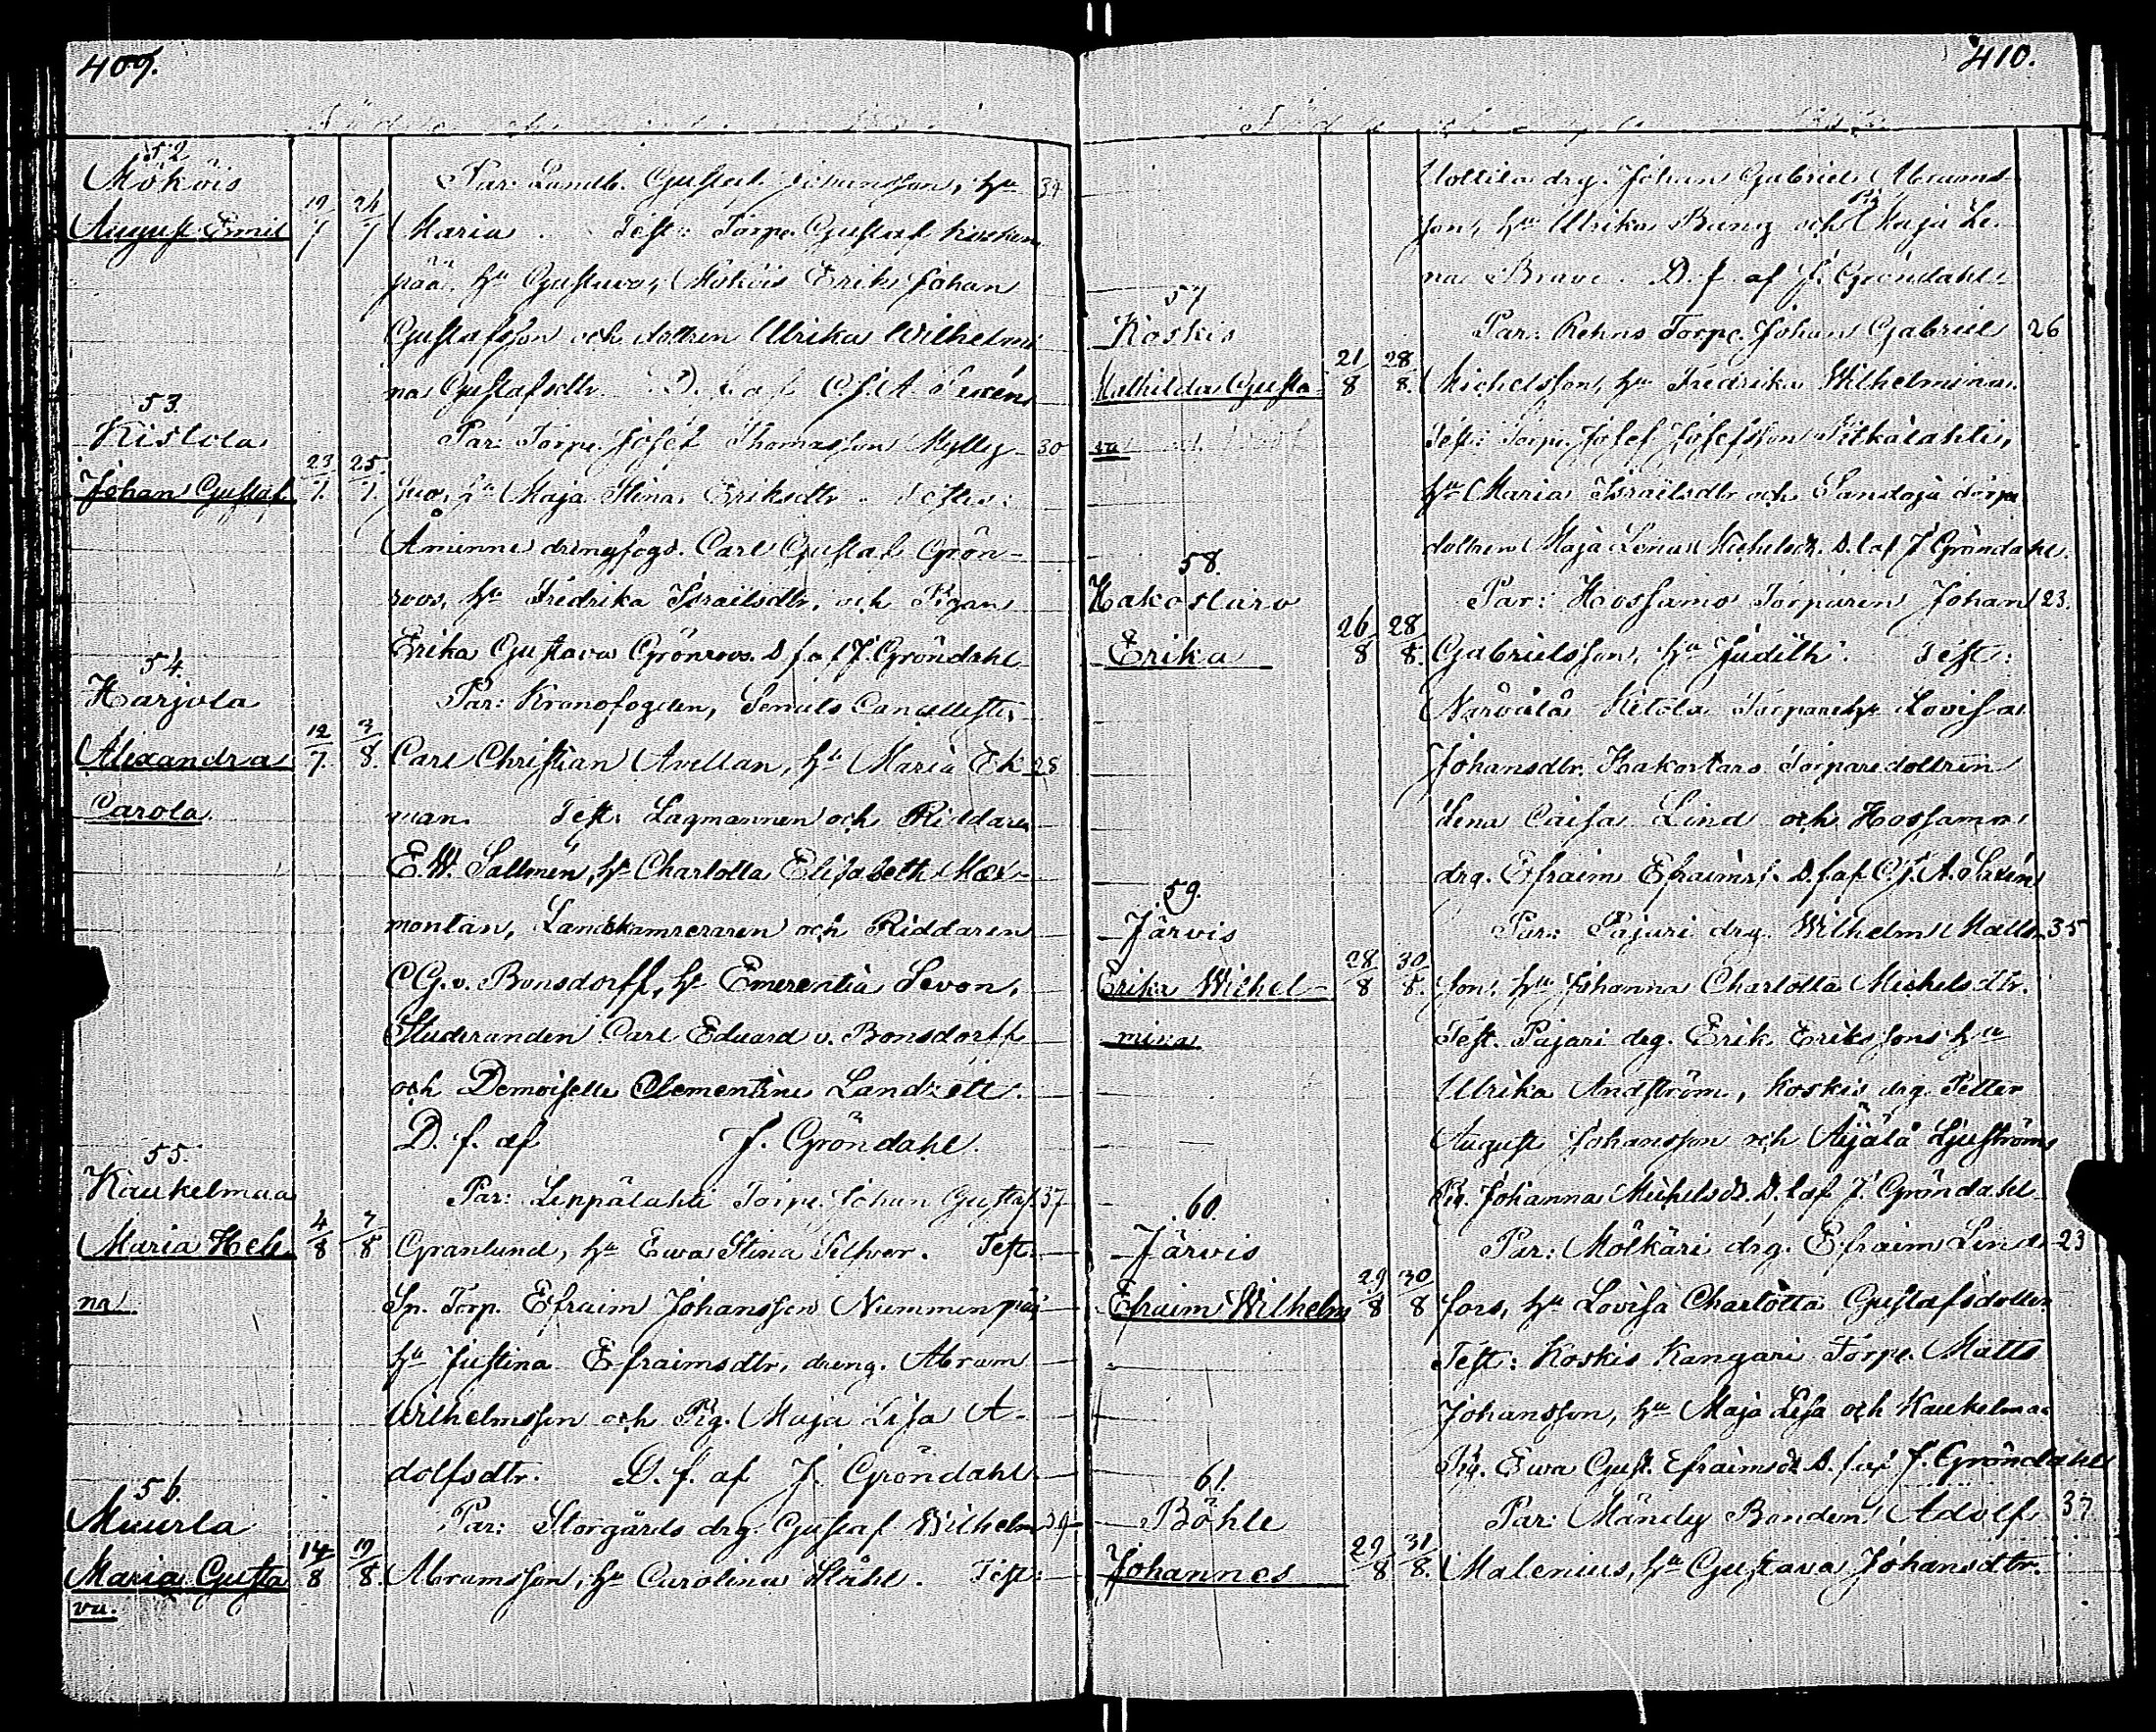 409.
52
Mököis
August Emil
19/7 24/7
Par: Landb. Gustaf Johansson, hu 34
Maria. Test: Torp. Gustaf Koskin
pää, hu Gustava, Mököis Erik Johan
Gustafsson och dottren Ulrika Wilhelmi
na Gustafsdtr. D. f. af C. J. A.
53.
Kistola
Johan Gustaf
23/7. 25/7.
Par: Torp. Josef Thomasson Mylly- 30
suo, hu Maja Stina Eriksdtr. Test:
Åminne drengfogd. Carl Gustaf Grön-
roos, hu Fredrika Israelsdtr, och Pigan
Erika Gustava Grönroos. D f af J. Gröndahl
54.
Harjola
Alexandra
Carola.
12/7. 3/8.
Par: Kronofogden, Senats Cancellisten
Carl Christian Avellan, hu Maria Ek- 28
man. Test: Lagmannen och Riddaren
E. W. Sallmén, hu Charlotta Elisabeth Mox-
montan, Landskamreraren och Riddaren
C G. v. Bonsdorff, hu Emerentia Levon,
Studeranden Carl Eduard v. Bonsdorff
och Demoiselle Clementine Landzett.
D. f. af J. Gröndahl.
55.
Kaukelmaa
Maria Hele
na
4/8 7/8
Par: Leppälahti Torp. Johan Gustaf 37
Granlund, hu Ewa Stina Silfver. Test.
Sn. Torp. Efraim Johansson Nummenpää
hu Justina Efraimsdtr, dreng. Abram
Wilhelmsson och Pig. Maja Lisa A-
dolfsdtr. D. f. af J. Gröndahl.
56.
Muurla
Maria Gusta
va.
14/8 19/8.
Par: Storgårds drg. Gustaf Wilhelm 39
Abramsson, hu Carolina Ståhl. Test:
410.
Uottila drg. Johan Gabriel Abrams-
son, hu Ulrika Bang och Pig Maja Le-
na Brave. D. f. af J. Gröndahl
57
Koskis
Mathilda Gusta-
va
21/8 28/8.
Par: Rehns Torp. Johan Gabriel 26
Michelsson, hu Fredrika Wilhelmina.
Test: Torp. Josef Josefsson Pitkälahti,
hu Maria Israelsdtr och Sandoja Torpa
dottren Maja Lena Michelsdr. D. f af J Gröndahl
58.
Hakostaro
Erika
26/8 28/8.
Par: Hossamo Torparen Johan 23.
Gabrielsson, hu Judith. Test:
Närvälä Ketola Torpareh. Lovisa
Johansdtr. Hakostaro Torparedottren
Lena Caisa Lind och Hossamo
drg. Efraim Efraims. D. f af C. J. A.
59.
Järvis
Erika Wilhel-
mina
28/8 30/8.
Par: Pajari drg. Wilhelm Matts- 35
son, hu Johanna Charlotta Michelsdtr.
Test. Pajari drg. Erik Erikssons hu
Ulrika Andström, Koskis drg. Petter
August Johansson och Äijälä Ljuströms
Pig. Johanna Michelsdr. D. f af J. Gröndahl
60.
Järvis
Efraim Wilhelm
29/8 30/8
Par: Mölkäri drg. Efraim Lind- 23
fors, hu Lovisa Charlotta Gustafsdotter
Test: Koskis Kangari Torp. Matts
Johansson, hu Maja Lisa och Kaukelmaa
Pig. Ewa Gust. Efraimsdr D. f af J. Gröndahl
61.
Böhle
Johannes
29/8 31/8.
Par: Mändy Bonden Adolf 37
Malenius, hu Gustava Johansdtr.